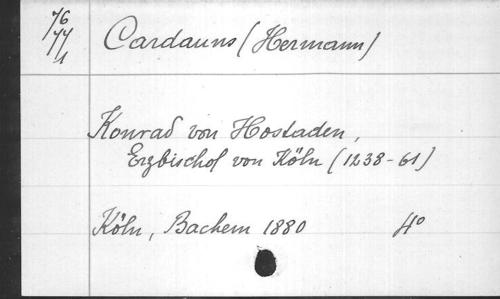 76
77
1
Cardauns (Hermann)
Konrad von Hostaden,
Erzbischof von Köln (1238-61)
Köln, Bachem 1880 4°